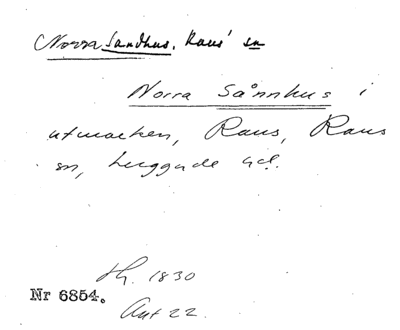 Norra Sandhus. Raus' sn
Norra Sånnhus i
utmarken, Raus, Raus
sn, Luggude hd.
1830
Nr 6854.
Ant 22.